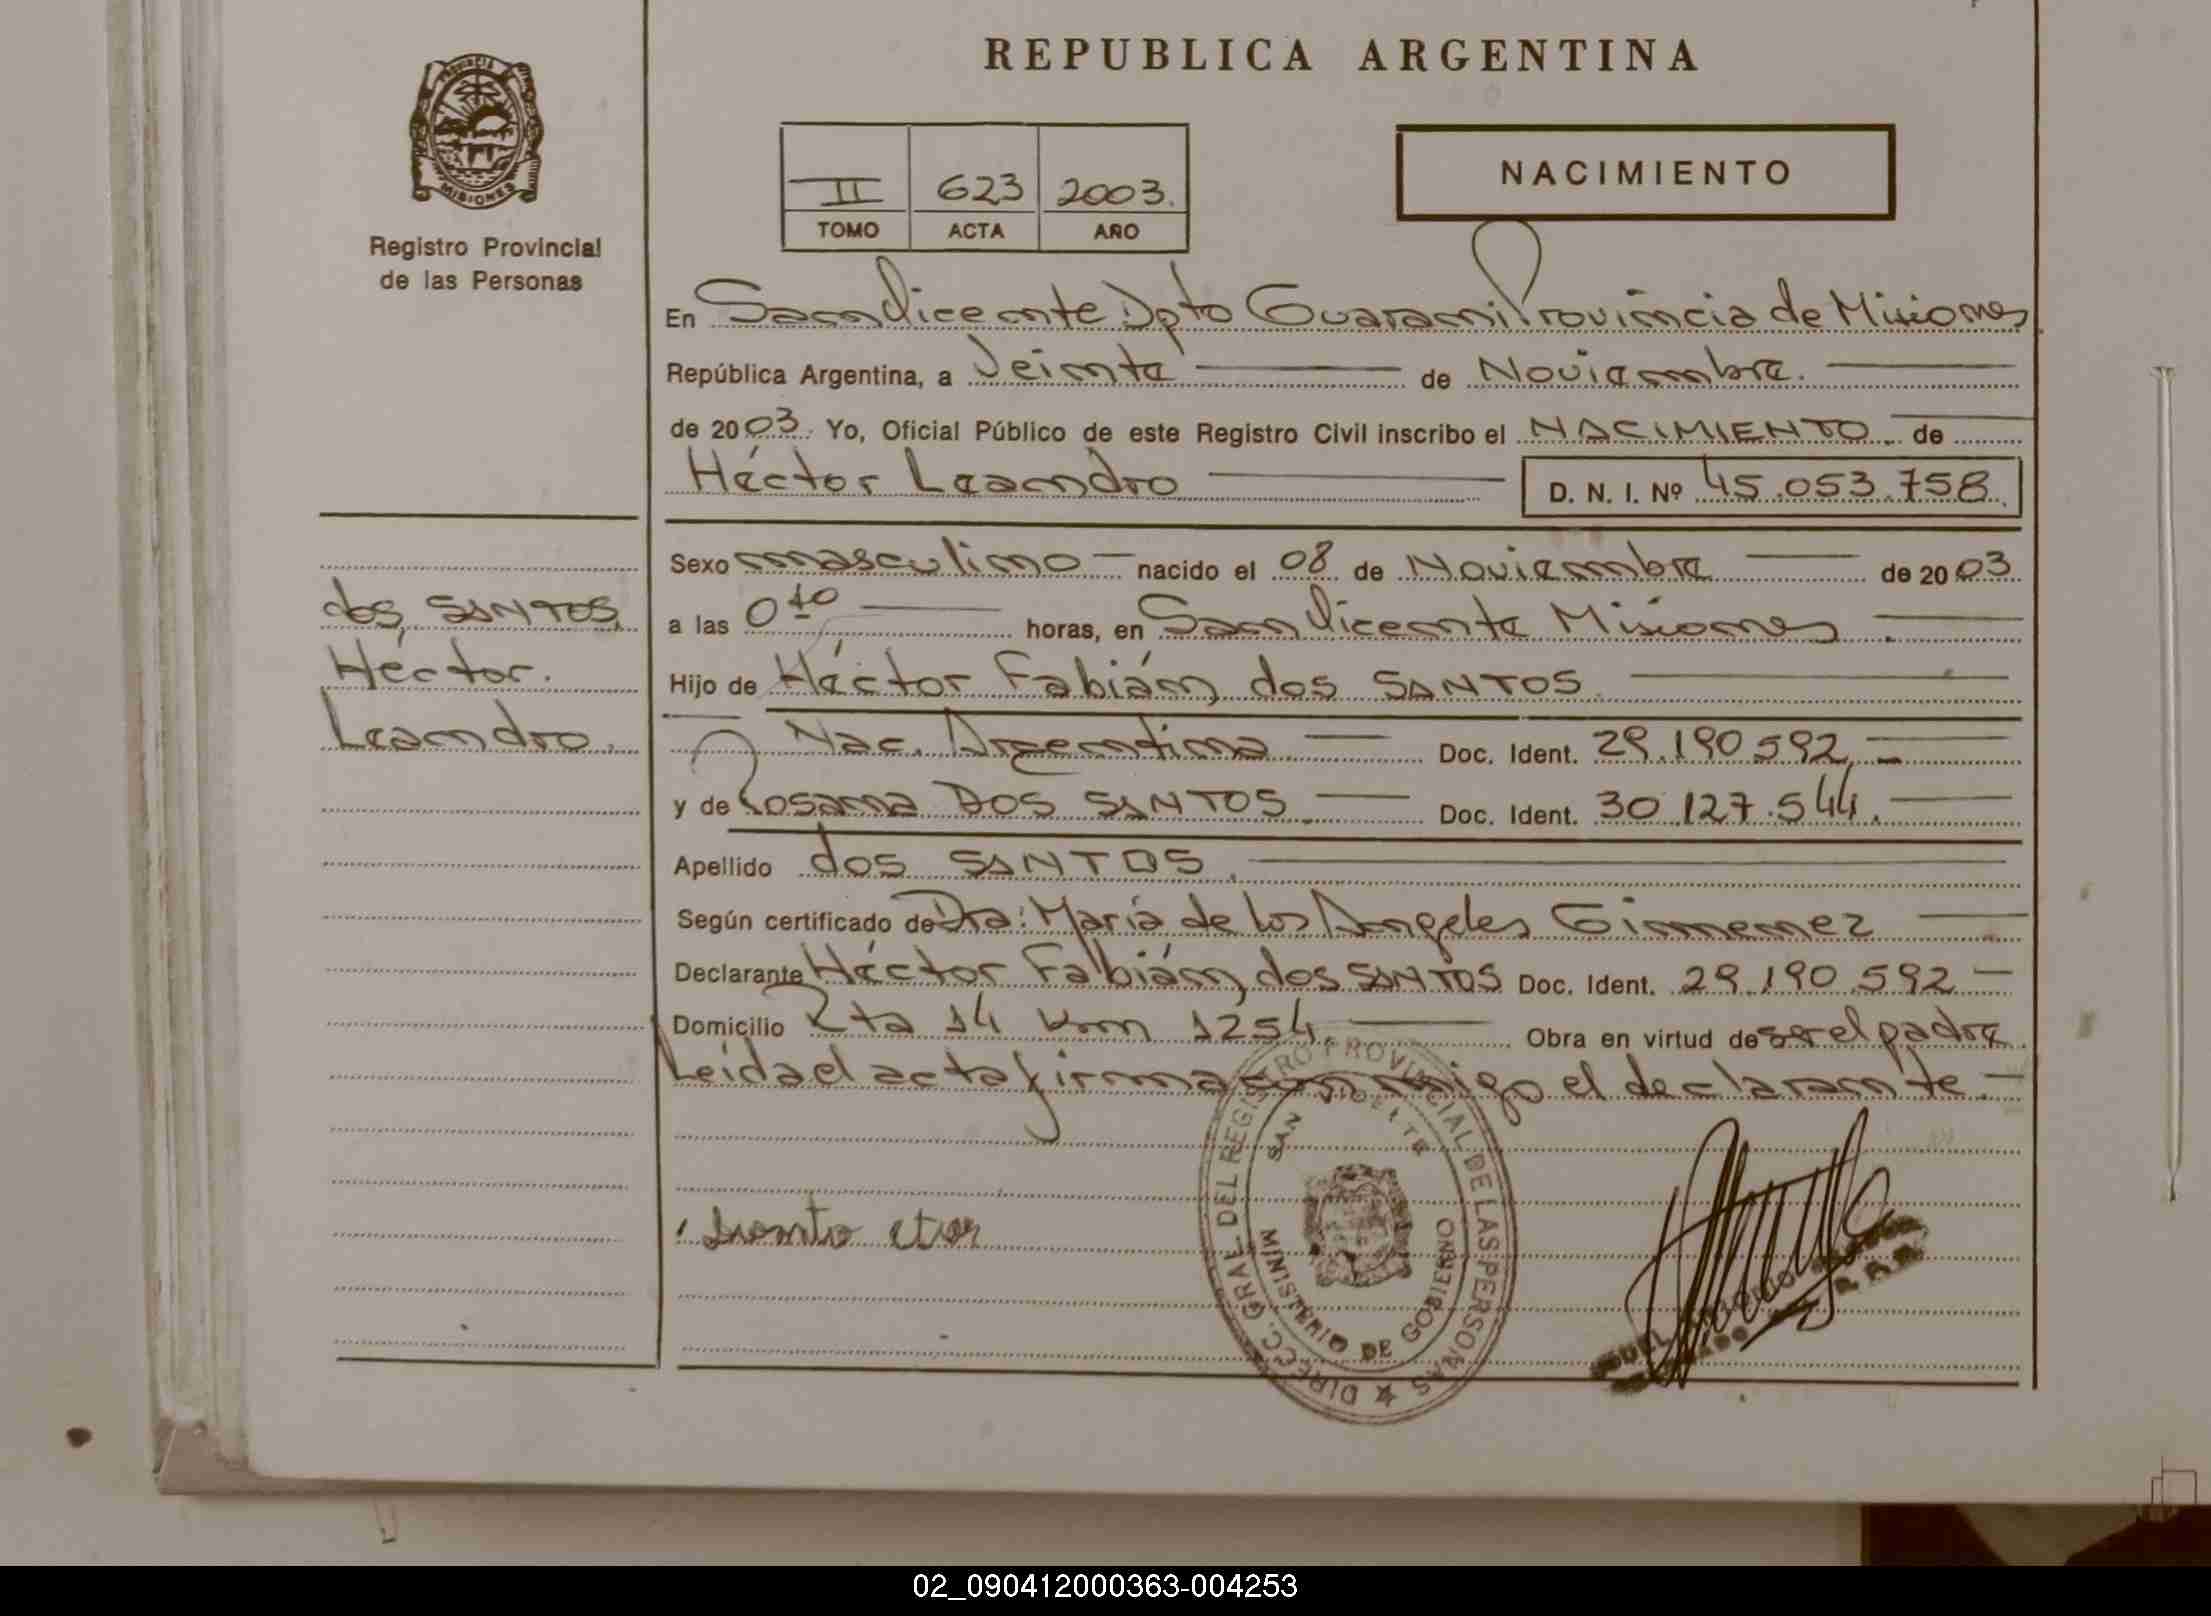 REPUBLICA ARGENTINA
PROVINCIA DE
MISIONES
Registro Provincial
de las Personas
II 623 2003.
TOMO ACTA AÑO
NACIMIENTO
En San Vicente Dpto Guarani Provincia de Misiones
República Argentina, a Veinte de Noviembre.
de 2003. Yo, Oficial Público de este Registro Civil inscribo el NACIMIENTO de
Héctor Leandro D. N. I. Nº 45.053.758.
Sexo masculino nacido el 08 de Noviembre de 2003
a las 0 10 horas, en San Vicente Misiones.
Hijo de Héctor Fabián dos SANTOS.
Nac. Argentina Doc. Ident. 29.190.592
y de Rosana DOS SANTOS. Doc. Ident. 30.127.544.
Apellido dos SANTOS.
Según certificado de Dra: María de los Angeles Gimenez
Declarante Héctor Fabián dos SANTOS Doc. Ident. 29.190.592
Domicilio Rta 14 Km 1254. Obra en virtud de ser el padre.
Leida el acta firma con migo el declarante.
dos SANTOS,
Héctor.
Leandro.
DIRECC. GRAL. DEL REGISTRO PROVINCIAL DE LAS PERSONAS
SAN VICENTE
MINISTERIO DE GOBIERNO
02_090412000363-004253